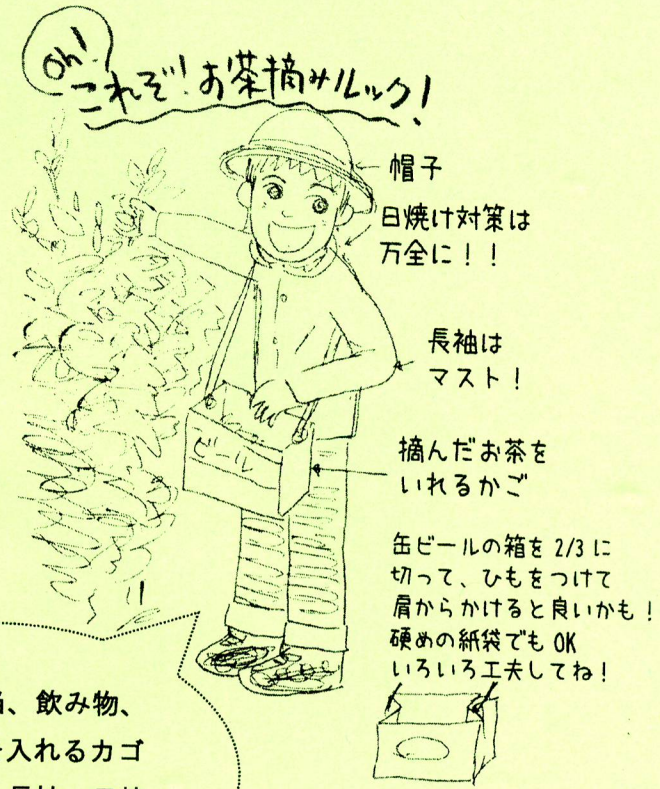 Oh!
これぞ!お茶摘みルック!
帽子
日焼け対策は
万全に!!
長袖は
マスト!
摘んだお茶を
いれるかご
ビール
缶ビールの箱を 2/3 に
切って、ひもをつけて
肩からかけると良いかも!
硬めの紙袋でも OK
いろいろ工夫してね!
、飲み物、
入れるカゴ